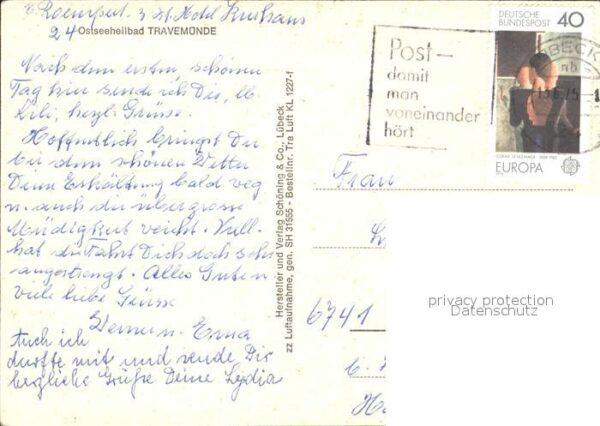 z. Zt. Hotel Kurhaus
24 Ostseeheilbad TRAVEMÜNDE
Nach dem ersten schönen
Tag hier sende ich Dir, lb.
Lili, herzl. Grüsse.
Hoffentlich bringst Du
bei dem schönen Wetter
Deine Erkältung bald weg
u. auch die übergrosse
Müdigkeit weicht. Viell.
hat die Fahrt Dich doch sehr
angestrengt. Alles Gute u.
viele liebe Grüsse
Deine Erna
Auch ich
durfte mit und sende Dir
herzliche Grüße Deine Lydia
Hersteller und Verlag Schöning & Co., Lübeck
zz Luftaufnahme, gen. SH 31555 - Bestellnr. Tra Luft KL 1227-f
Post-
damit
man
voneinander
hört
DEUTSCHE
BUNDESPOST
40
EUROPA
BECK
Frau
6741
privacy protection
Datenschutz